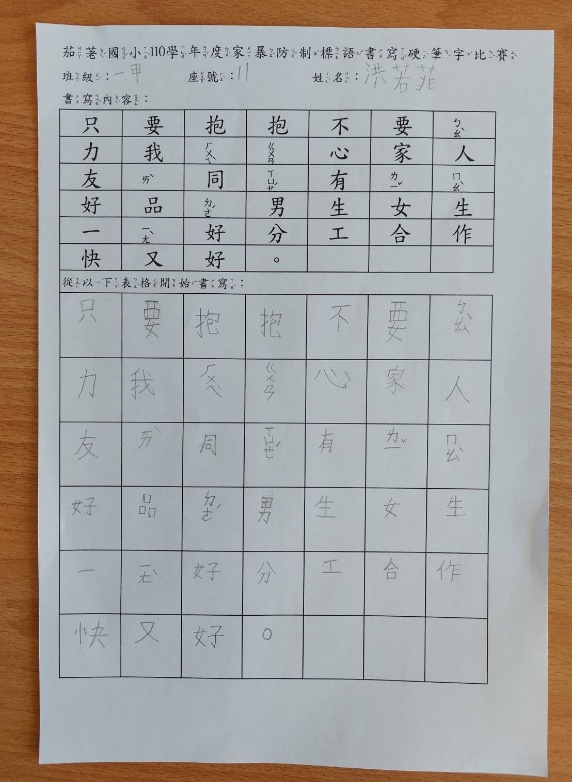 茄荖國小110學年度家暴防制標語書寫硬筆字比賽
班級：一甲 座號：11 姓名：洪若菲
書寫內容：
只 要 抱 抱 不 要 ㄅㄠˋ
力 我 ㄏㄨˋ ㄍㄨㄢ 心 家 人
友 ㄞˋ 同 ㄒㄩㄝˊ 有 ㄌㄧˇ ㄇㄠˋ
好 品 ㄉㄜˊ 男 生 女 生
一 ㄧㄤˋ 好 分 工 合 作
快 又 好 。
從以下表格開始書寫：
只 要 抱 抱 不 要 ㄅㄠˋ
力 我 ㄏㄨˋ ㄍㄨㄢ 心 家 人
友 ㄞˋ 同 ㄒㄩㄝˊ 有 ㄌㄧˇ ㄇㄠˋ
好 品 ㄉㄜˊ 男 生 女 生
一 ㄧㄤˋ 好 分 工 合 作
快 又 好 。